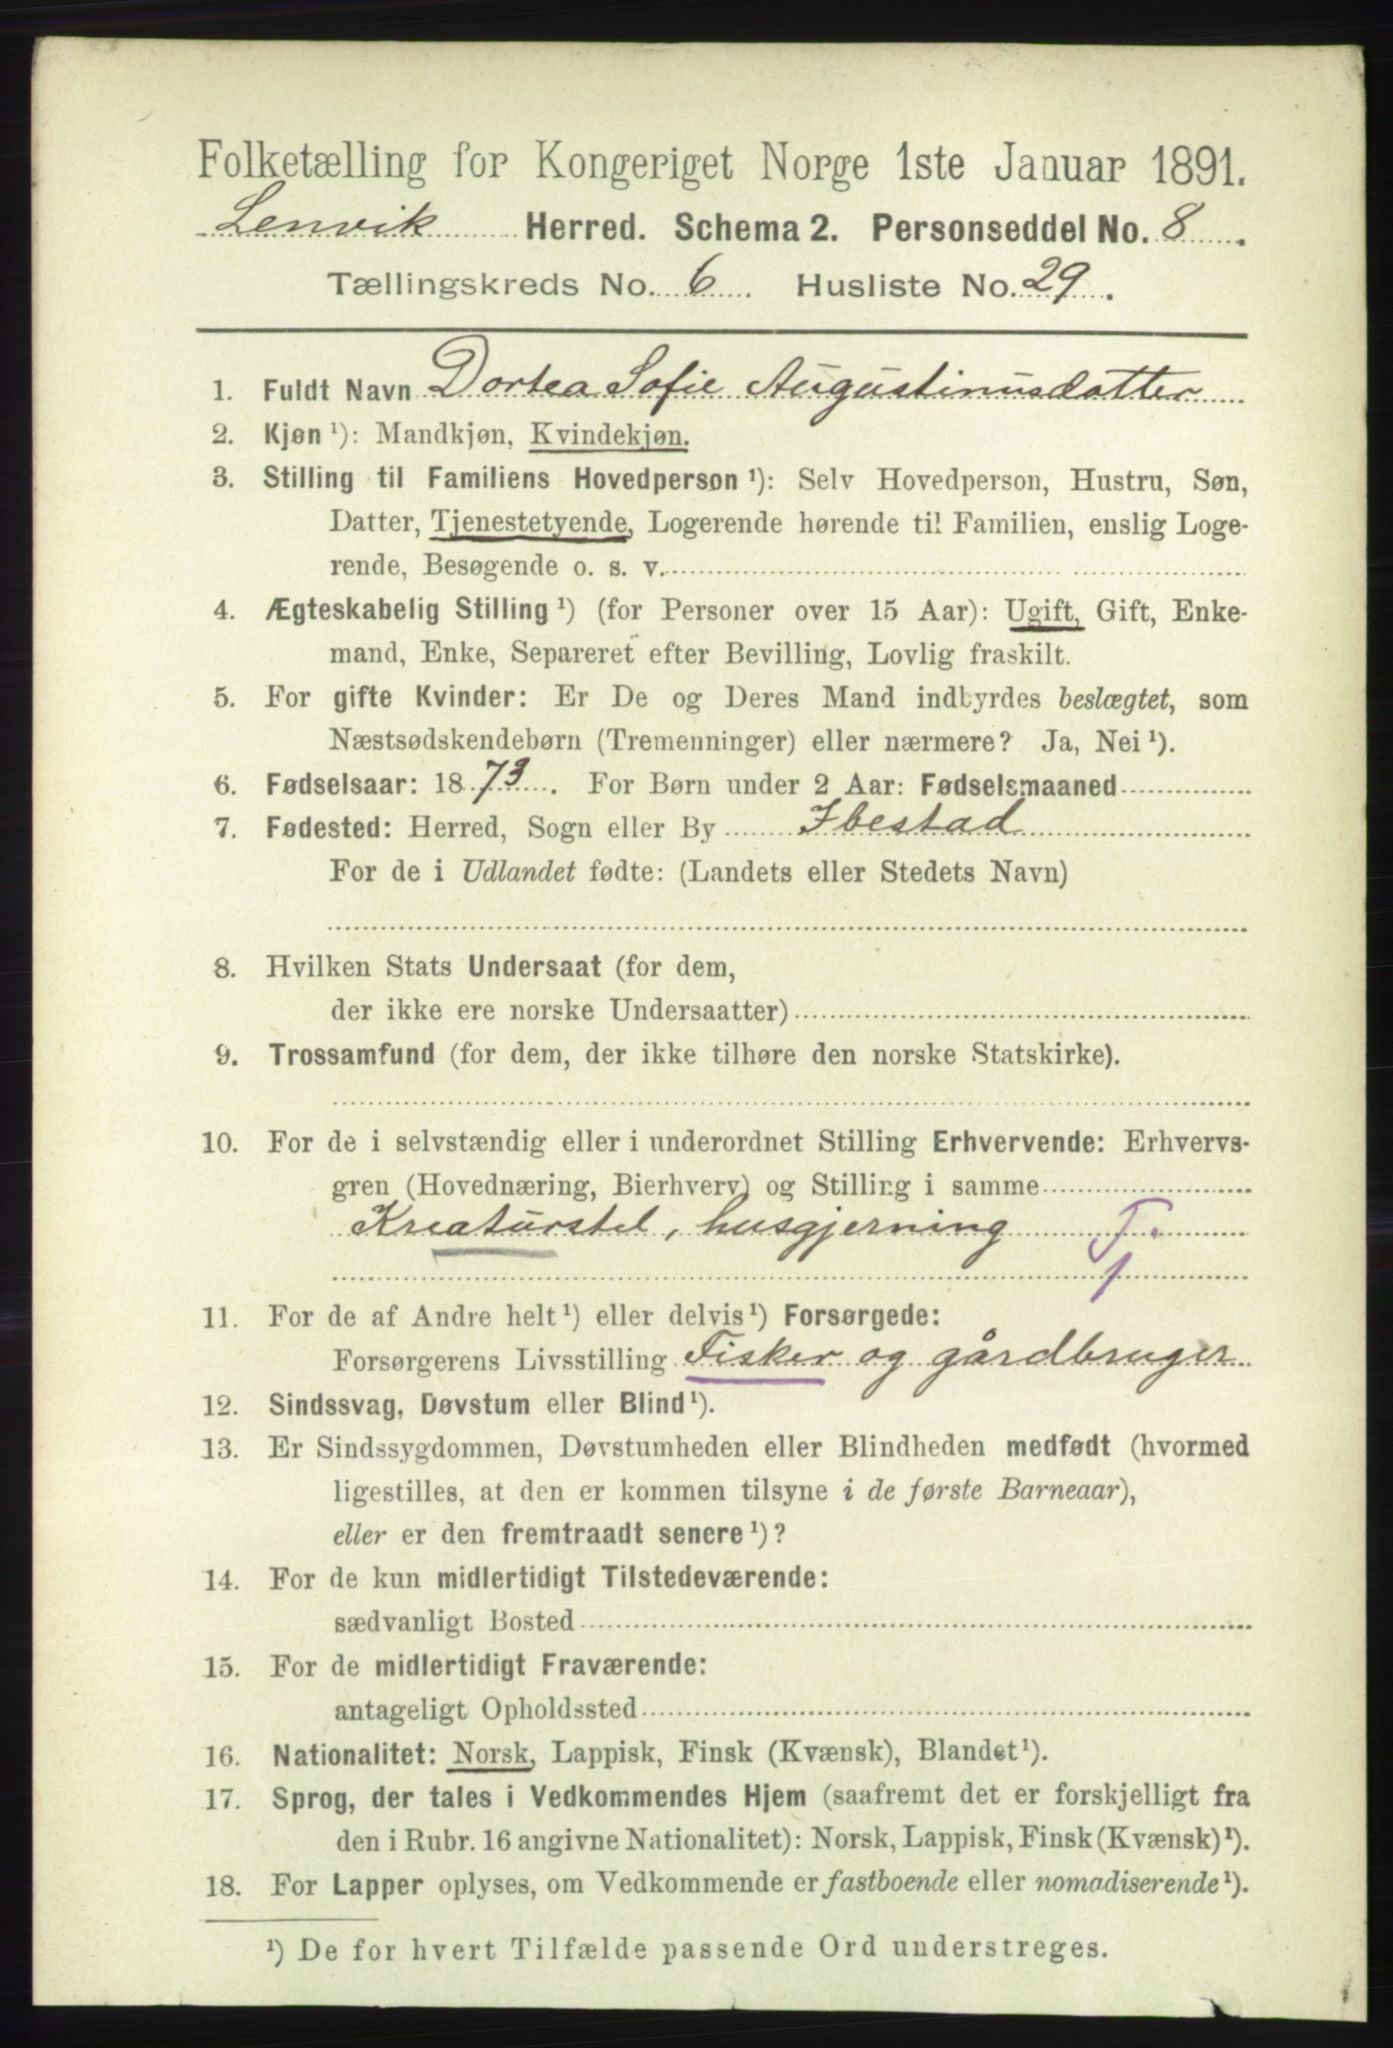 Folketælling for Kongeriget Norge 1ste Januar 1891.
Lenvik Herred. Schema 2. Personseddel No. 8.
Tællingskreds No. 6. Husliste No. 29.
1. Fuldt Navn Dortea Sofie Augustinusdatter
2. Kjøn ¹): Mandkjøn, Kvindekjøn.
3. Stilling til Familiens Hovedperson ¹): Selv Hovedperson, Hustru, Søn,
Datter, Tjenestetyende, Logerende hørende til Familien, enslig Loge-
rende, Besøgende o. s. v.
4. Ægteskabelig Stilling ¹) (for Personer over 15 Aar): Ugift, Gift, Enke-
mand, Enke, Separeret efter Bevilling, Lovlig fraskilt.
5. For gifte Kvinder: Er De og Deres Mand indbyrdes beslægtet, som
Næstsødskendebørn (Tremenninger) eller nærmere? Ja, Nei ¹).
6. Fødselsaar: 1873. For Børn under 2 Aar: Fødselsmaaned
7. Fødested: Herred, Sogn eller By Ibestad
For de i Udlandet fødte: (Landets eller Stedets Navn)
8. Hvilken Stats Undersaat (for dem,
der ikke ere norske Undersaatter)
9. Trossamfund (for dem, der ikke tilhøre den norske Statskirke).
10. For de i selvstændig eller i underordnet Stilling Erhvervende: Erhvervs-
gren (Hovednæring, Bierhverv) og Stilling i samme
Kreaturstel, husgjerning T.
1
11. For de af Andre helt ¹) eller delvis ¹) Forsørgede:
Forsørgerens Livsstilling Fisker og gårdbruger
12. Sindssvag, Døvstum eller Blind ¹).
13. Er Sindssygdommen, Døvstumheden eller Blindheden medfødt (hvormed
ligestilles, at den er kommen tilsyne i de første Barneaar),
eller er den fremtraadt senere ¹)?
14. For de kun midlertidigt Tilstedeværende:
sædvanligt Bosted
15. For de midlertidigt Fraværende:
antageligt Opholdssted
16. Nationalitet: Norsk, Lappisk, Finsk (Kvænsk), Blandet ¹).
17. Sprog, der tales i Vedkommendes Hjem (saafremt det er forskjelligt fra
den i Rubr. 16 angivne Nationalitet): Norsk, Lappisk, Finsk (Kvænsk) ¹).
18. For Lapper oplyses, om Vedkommende er fastboende eller nomadiserende ¹).
¹) De for hvert Tilfælde passende Ord understreges.